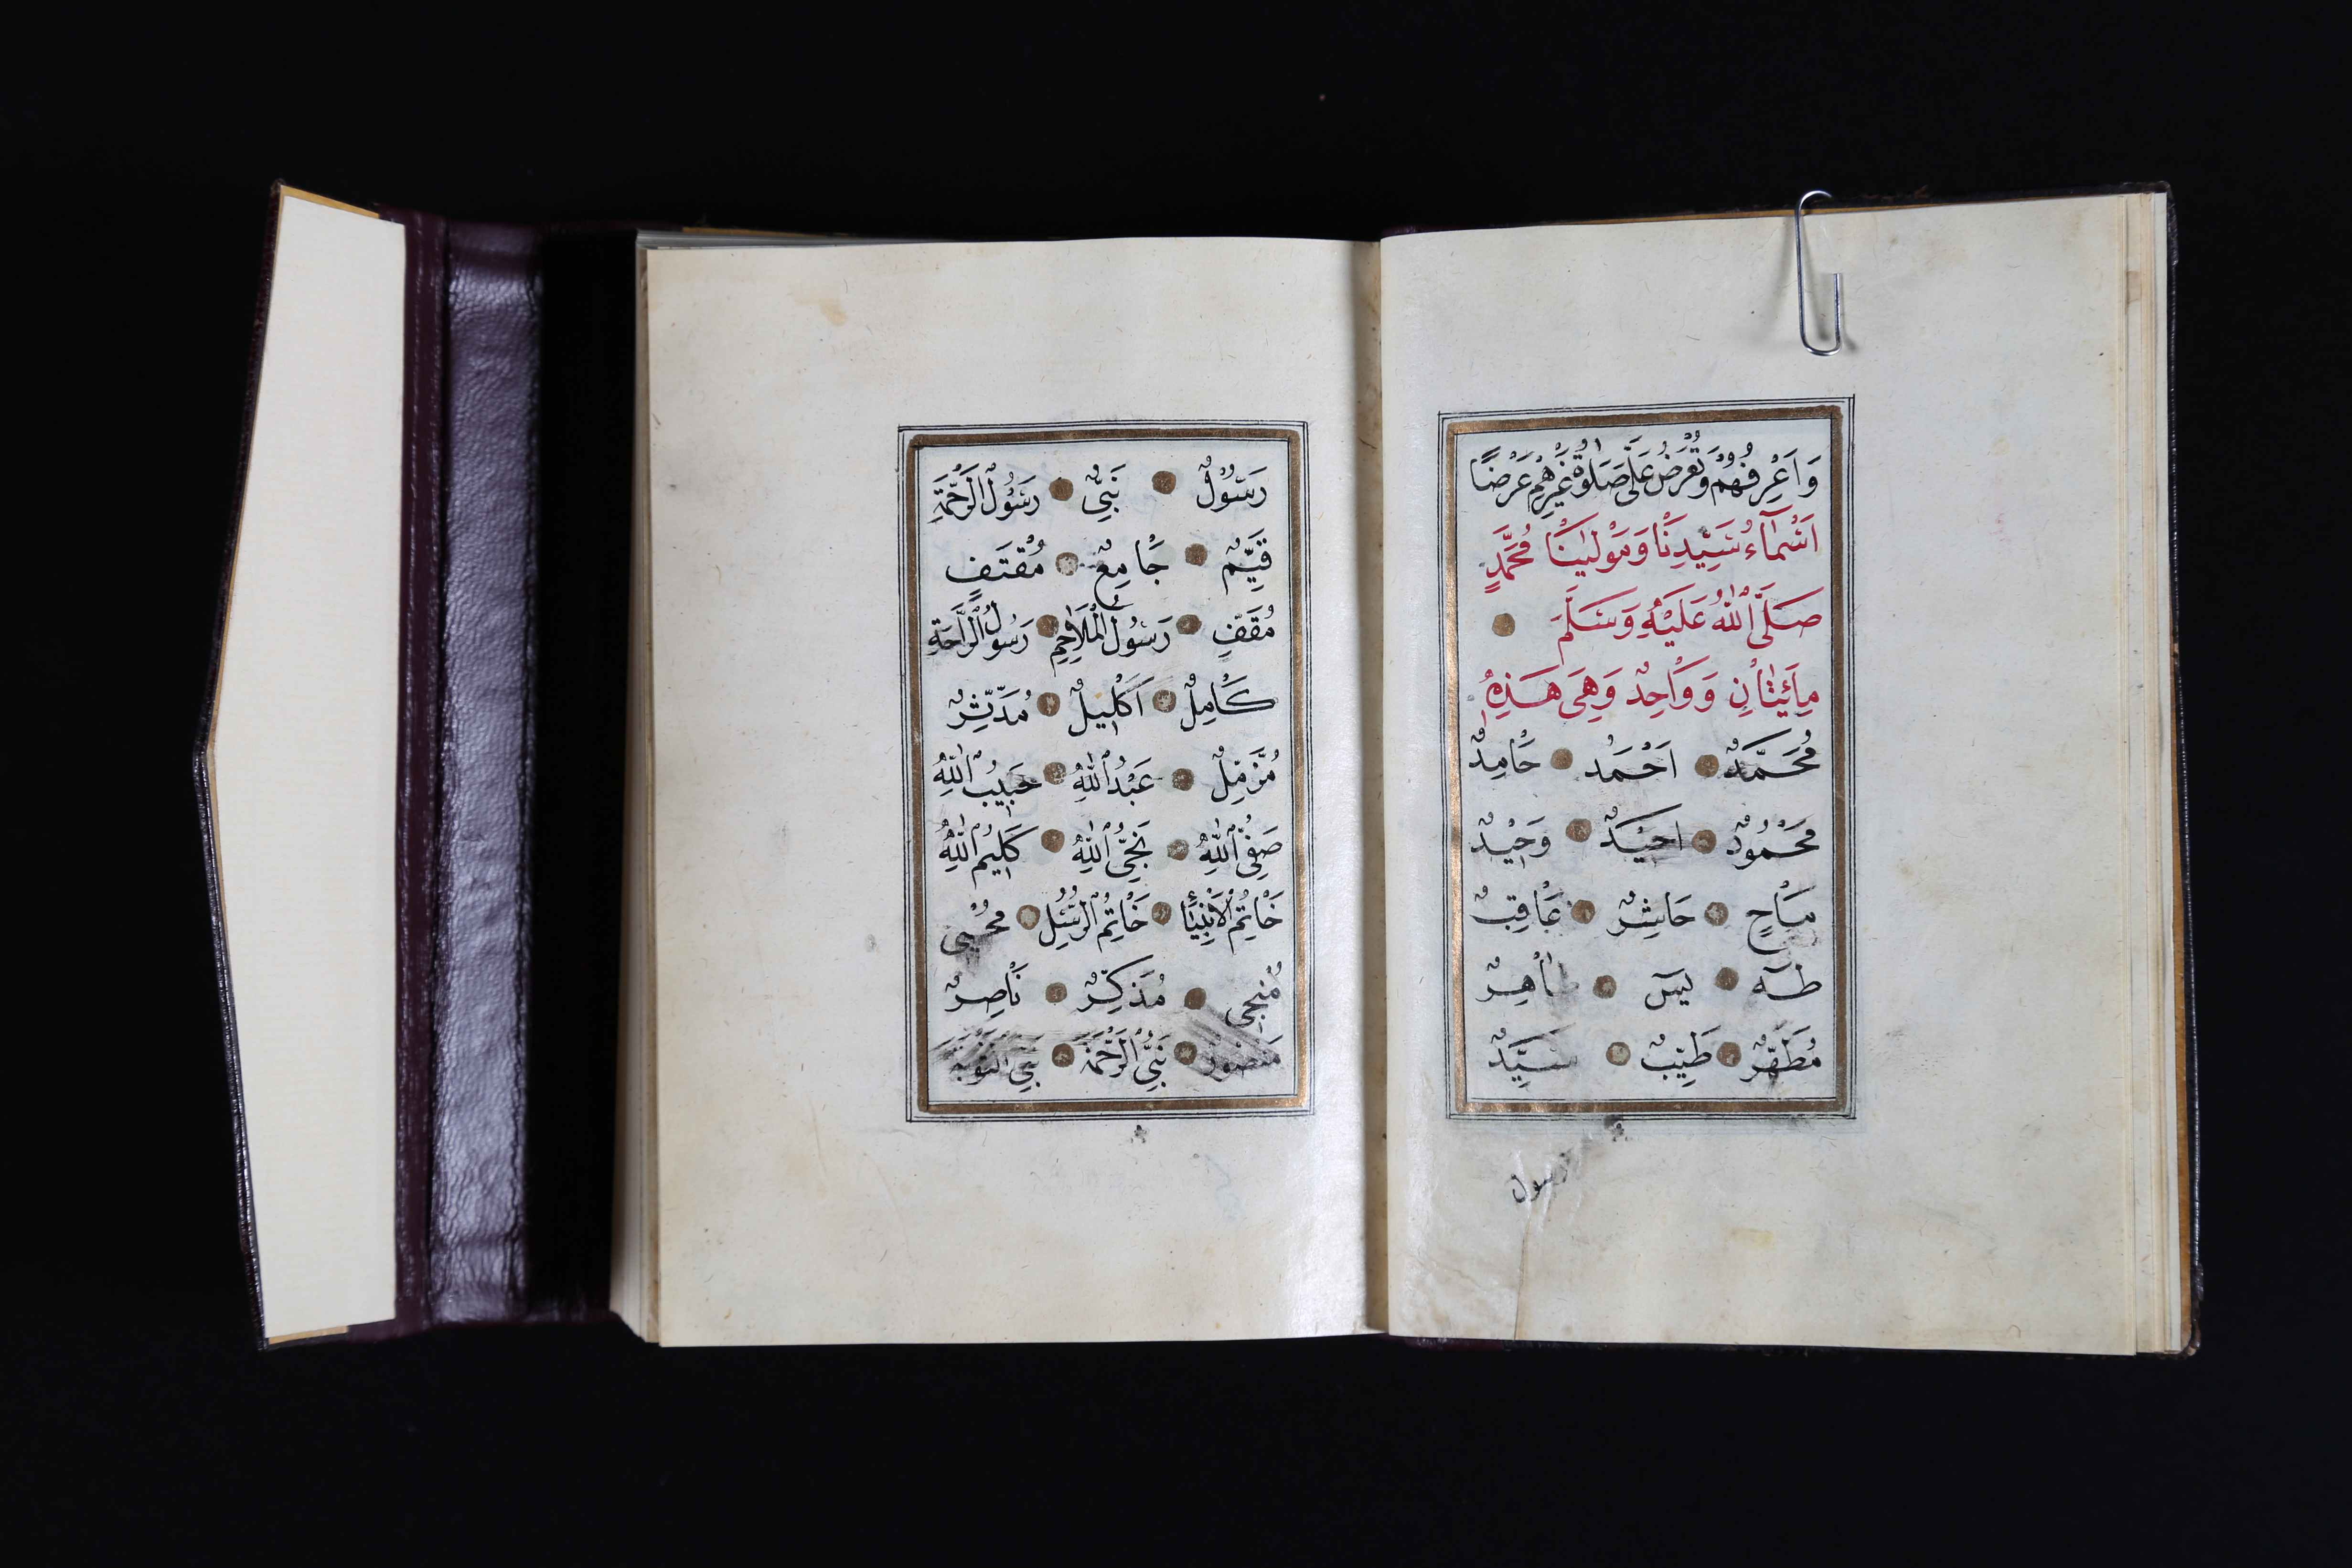 وَاَعْرِفُهُمْ وَتُعْرَضُ عَلَىَّ صَلٰوةُ غَيْرِهِمْ عَرْضًا
اَسْمَآءُ سَيِّدِنَا وَمَوْلٰينَا مُحَمَّدٍ
صَلَّى اللّٰهُ عَلَيْهِ وَسَلَّمَ
مِائَيتَانِ وَوَاحِدٌ وَهِىَ هَذِهِ
مُحَمَّدٌ اَحْمَدُ حَامِدٌ
مَحْمُودٌ احِيْدٌ وَحِيْدٌ
مَاحٍ حَاشِرٌ عَاقِبٌ
طٰهٰ يٰسٓ طَاهِرٌ
مُطَهَّرٌ طَيِّبٌ سَيِّدٌ
رسول
رَسُوْلٌ نَبِىٌّ رَسُوْلُ الرَّحْمَةِ
قَيِّمٌ جَامِعٌ مُقْتَفٍ
مُقَفٍّ رَسُوْلُ الْمَلَاحِمِ رَسُوْلُ الرَّاحَةِ
كَامِلٌ اَكْلِيلٌ مُدَّثِّرٌ
مُزَّمِّلٌ عَبْدُ اللّٰهِ حَبِيْبُ اللّٰهِ
صَفِىُّ اللّٰهِ نَجِىُّ اللّٰهِ كَلِيْمُ اللّٰهِ
خَاتِمُ الْاَنْبِيَاءِ خَاتِمُ الرُّسُلِ مُحْيِى
مُنْجِى مُذَكِّرٌ نَاصِرٌ
مَنْصُورٌ نَبِىُّ الرَّحْمَةِ نَبِىُّ التَّوْبَةِ